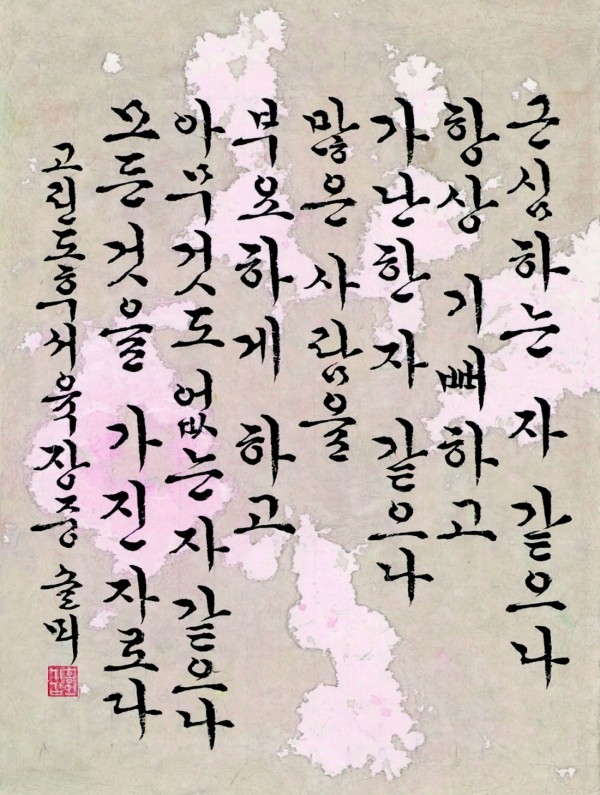 근심하는 자 같으나
항상 기뻐하고
가난한 자 같으나
많은 사람을
부요하게 하고
아무것도 없는 자 같으나
모든 것을 가진 자로다
고린도후서 육장중 술뫼